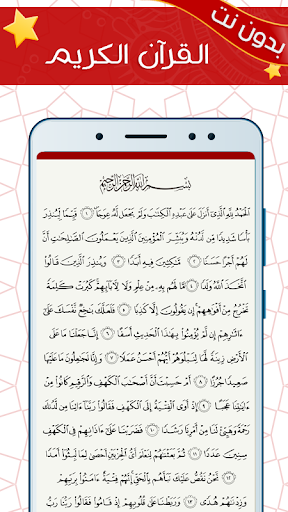 بدون نت
القرآن الكريم
بِسْمِ ٱللَّهِ ٱلرَّحْمَٰنِ ٱلرَّحِيمِ
ٱلْحَمْدُ لِلَّهِ ٱلَّذِىٓ أَنزَلَ عَلَىٰ عَبْدِهِ ٱلْكِتَٰبَ وَلَمْ يَجْعَل لَّهُۥ عِوَجَاۜ ١ قَيِّمًا لِّيُنذِرَ
بَأْسًا شَدِيدًا مِّن لَّدُنْهُ وَيُبَشِّرَ ٱلْمُؤْمِنِينَ ٱلَّذِينَ يَعْمَلُونَ ٱلصَّٰلِحَٰتِ أَنَّ
لَهُمْ أَجْرًا حَسَنًا ٢ مَّٰكِثِينَ فِيهِ أَبَدًا ٣ وَيُنذِرَ ٱلَّذِينَ قَالُوا۟
ٱتَّخَذَ ٱللَّهُ وَلَدًا ٤ مَّا لَهُم بِهِۦ مِنْ عِلْمٍ وَلَا لِءَابَآئِهِمْ كَبُرَتْ كَلِمَةً
تَخْرُجُ مِنْ أَفْوَٰهِهِمْ إِن يَقُولُونَ إِلَّا كَذِبًا ٥ فَلَعَلَّكَ بَٰخِعٌ نَّفْسَكَ عَلَىٰٓ
ءَاثَٰرِهِمْ إِن لَّمْ يُؤْمِنُوا۟ بِهَٰذَا ٱلْحَدِيثِ أَسَفًا ٦ إِنَّا جَعَلْنَا مَا عَلَى
ٱلْأَرْضِ زِينَةً لَّهَا لِنَبْلُوَهُمْ أَيُّهُمْ أَحْسَنُ عَمَلًا ٧ وَإِنَّا لَجَٰعِلُونَ مَا عَلَيْهَا
صَعِيدًا جُرُزًا ٨ أَمْ حَسِبْتَ أَنَّ أَصْحَٰبَ ٱلْكَهْفِ وَٱلرَّقِيمِ كَانُوا۟ مِنْ
ءَايَٰتِنَا عَجَبًا ٩ إِذْ أَوَى ٱلْفِتْيَةُ إِلَى ٱلْكَهْفِ فَقَالُوا۟ رَبَّنَآ ءَاتِنَا مِن لَّدُنكَ
رَحْمَةً وَهَيِّئْ لَنَا مِنْ أَمْرِنَا رَشَدًا ١٠ فَضَرَبْنَا عَلَىٰٓ ءَاذَانِهِمْ فِى ٱلْكَهْفِ
سِنِينَ عَدَدًا ١١ ثُمَّ بَعَثْنَٰهُمْ لِنَعْلَمَ أَىُّ ٱلْحِزْبَيْنِ أَحْصَىٰ لِمَا لَبِثُوٓا۟ أَمَدًا
١٢ نَّحْنُ نَقُصُّ عَلَيْكَ نَبَأَهُم بِٱلْحَقِّ إِنَّهُمْ فِتْيَةٌ ءَامَنُوا۟ بِرَبِّهِمْ
وَزِدْنَٰهُمْ هُدًى ١٣ وَرَبَطْنَا عَلَىٰ قُلُوبِهِمْ إِذْ قَامُوا۟ فَقَالُوا۟ رَبُّنَا رَبُّ